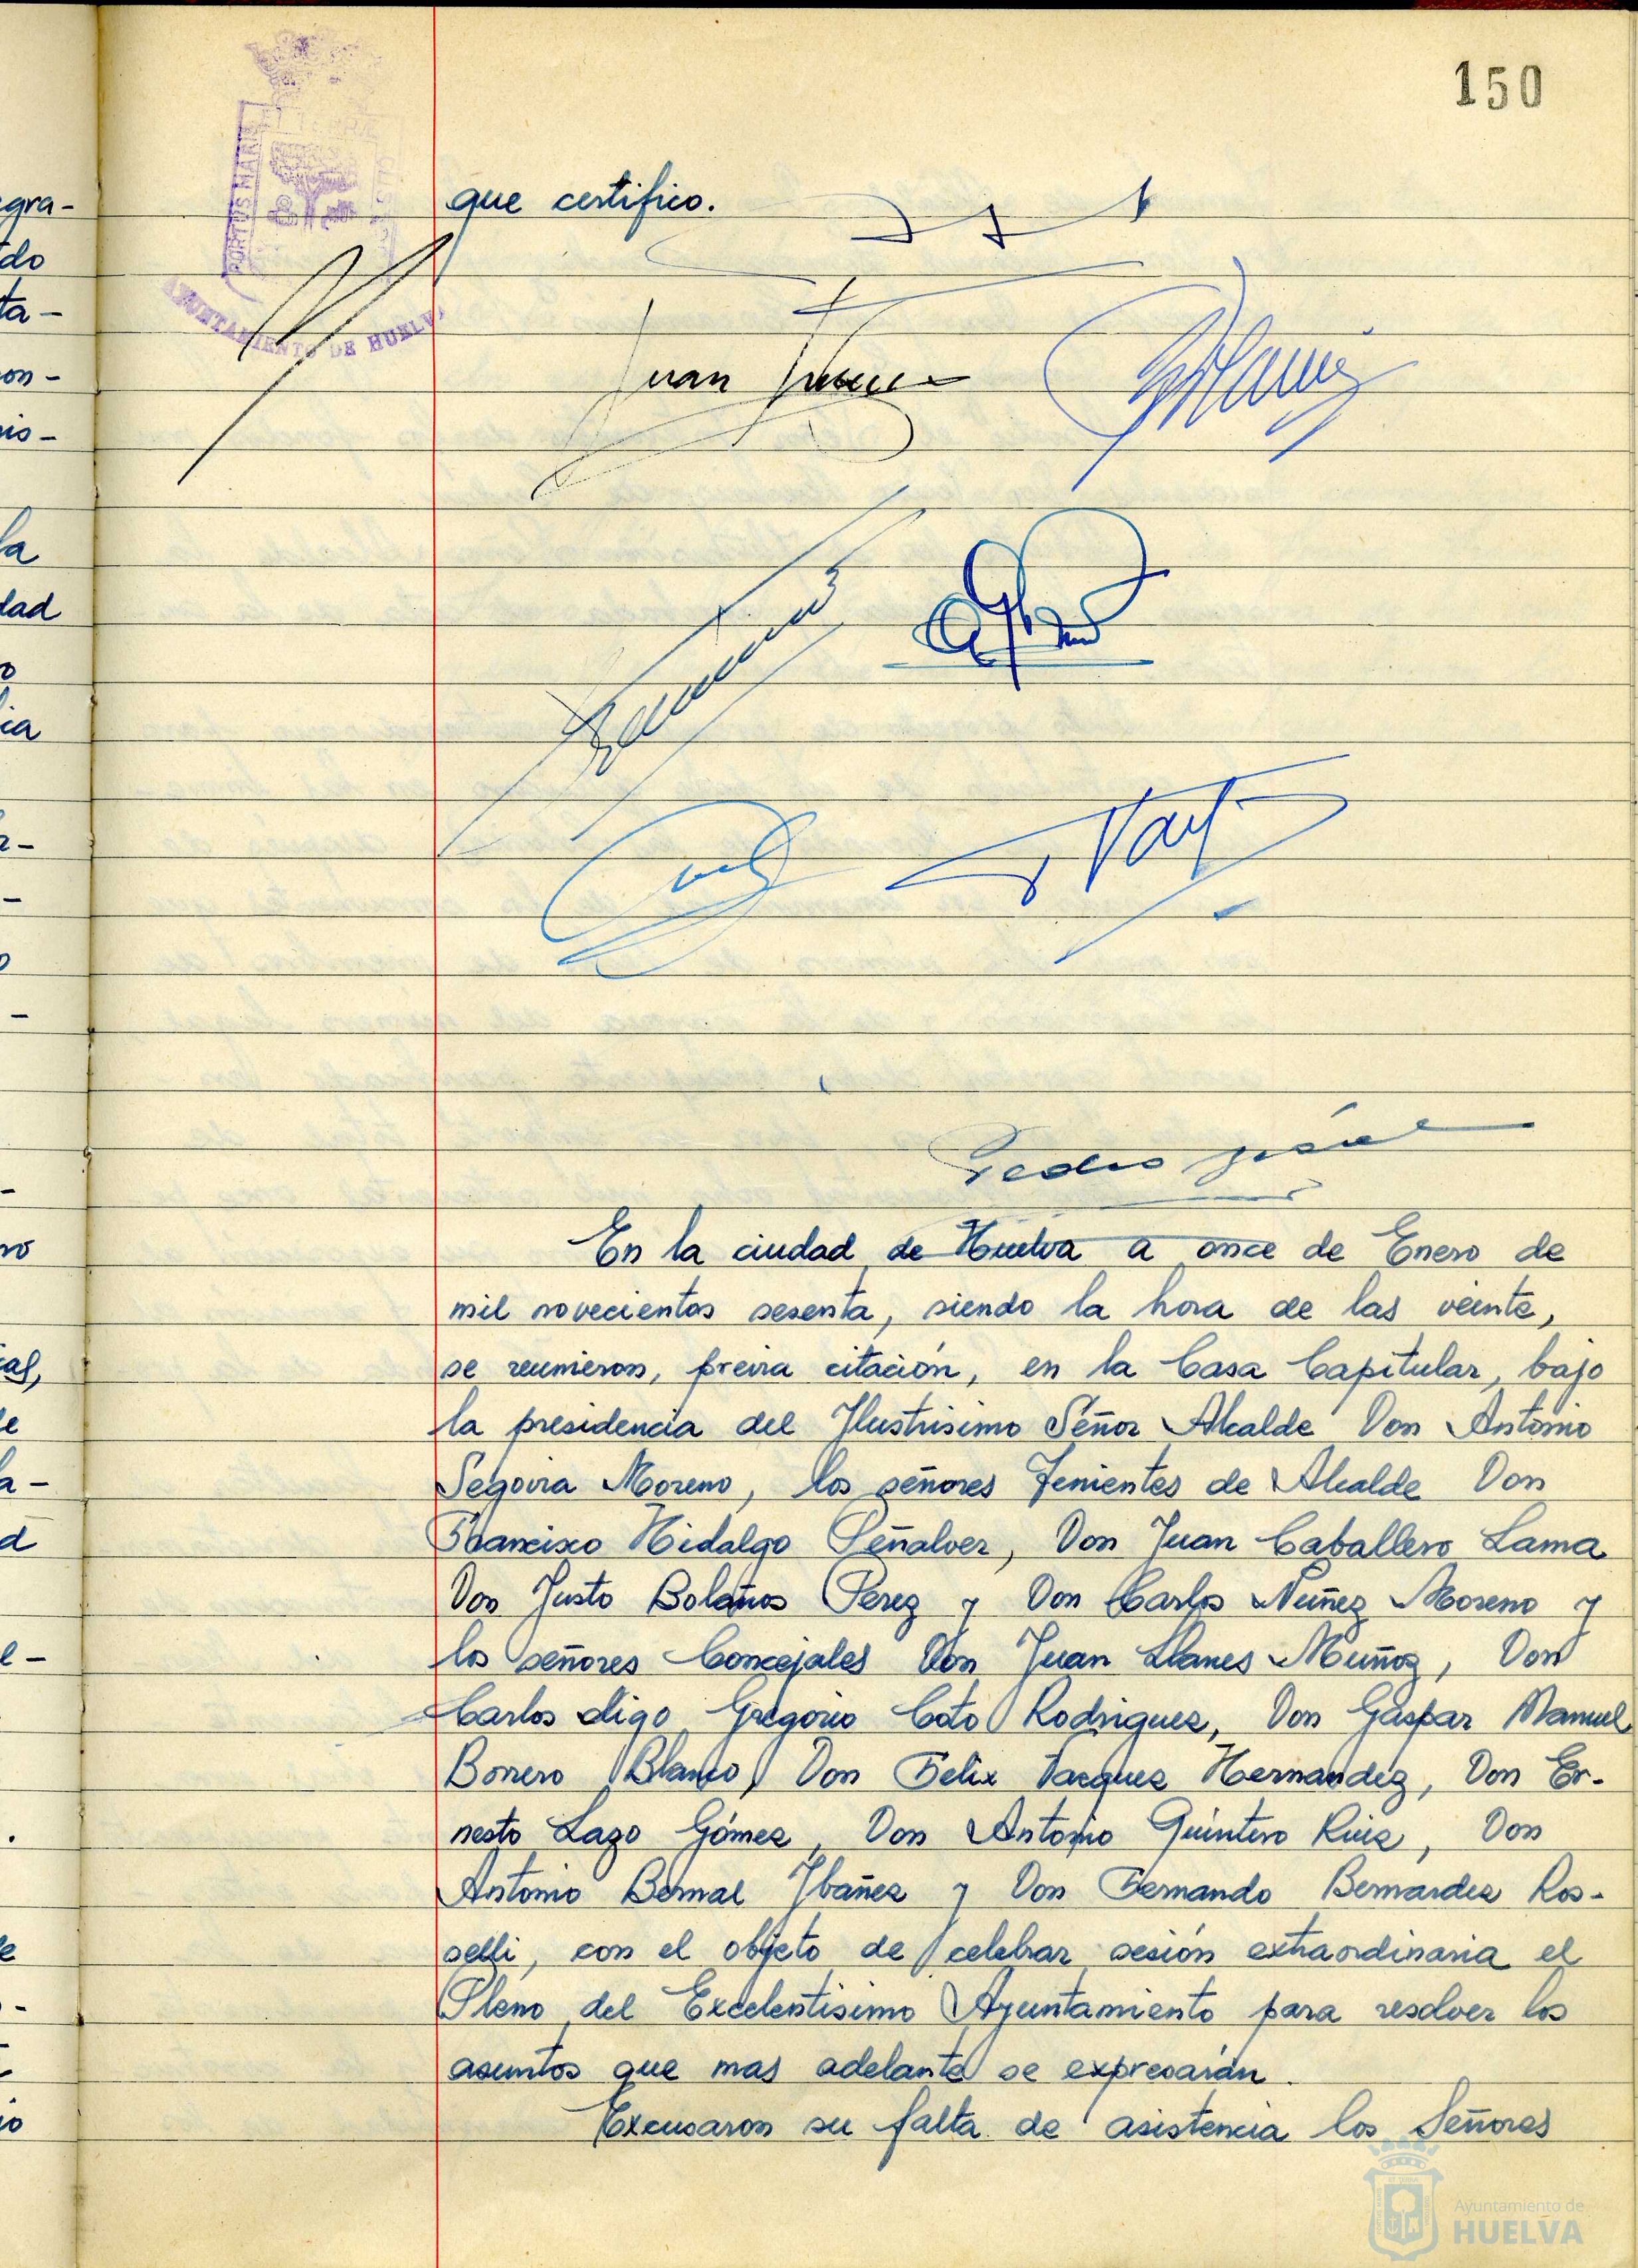 150
PORTUS MARIS ET TERRAE CUSTODIA
AYUNTAMIENTO DE HUELVA
que certifico.
Juan
Pedro
En la ciudad de Huelva a once de Enero de
mil novecientos sesenta, siendo la hora de las veinte,
se reunieron, previa citación, en la Casa Capitular, bajo
la presidencia del Ilustrisimo Señor Alcalde Don Antonio
Segovia Moreno, los señores Tenientes de Alcalde Don
Francisco Hidalgo Peñalver, Don Juan Caballero Lama
Don Justo Bolaños Perez y Don Carlos Nuñez Moreno y
los señores Concejales Don Juan Llanes Muñoz, Don
Carlos digo Gregorio Coto Rodriguez, Don Gaspar Manuel
Borrero Blanco, Don Felix Vazquez Hernandez, Don Er-
nesto Lazo Gómez, Don Antonio Quintero Ruiz, Don
Antonio Bernal Ybañez y Don Fernando Bernardez Ros-
selli, con el objeto de celebrar sesión extraordinaria el
Pleno del Excelentisimo Ayuntamiento para resolver los
asuntos que mas adelante se expresarán.
Excusaron su falta de asistencia los Señores
Ayuntamiento de
HUELVA
gra-
do
ta-
on-
is-
la
dad
o
ia